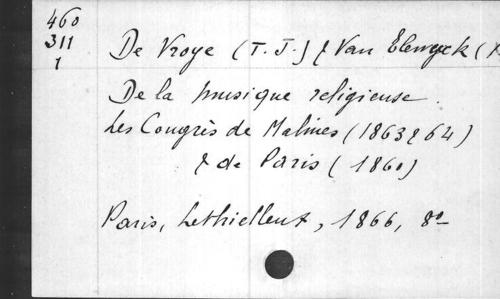 460
311
1
De Vroye (T. J.) & Van Elewyck (X
De la musique religieuse
Les Congrès de Malines (1863 & 64)
& de Paris (1860)
Paris, Lethielleux, 1866, 8º